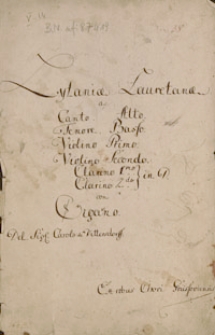 Lytaniæ Lauretanæ
a
Canto Alto
Tenore Basso
Violino Primo
Violino Secondo
Clarino 1mo
Clarino 2do } in D
con
Organo
Del Sigl Carolo a Dittersdorf
Ex rebus Chori